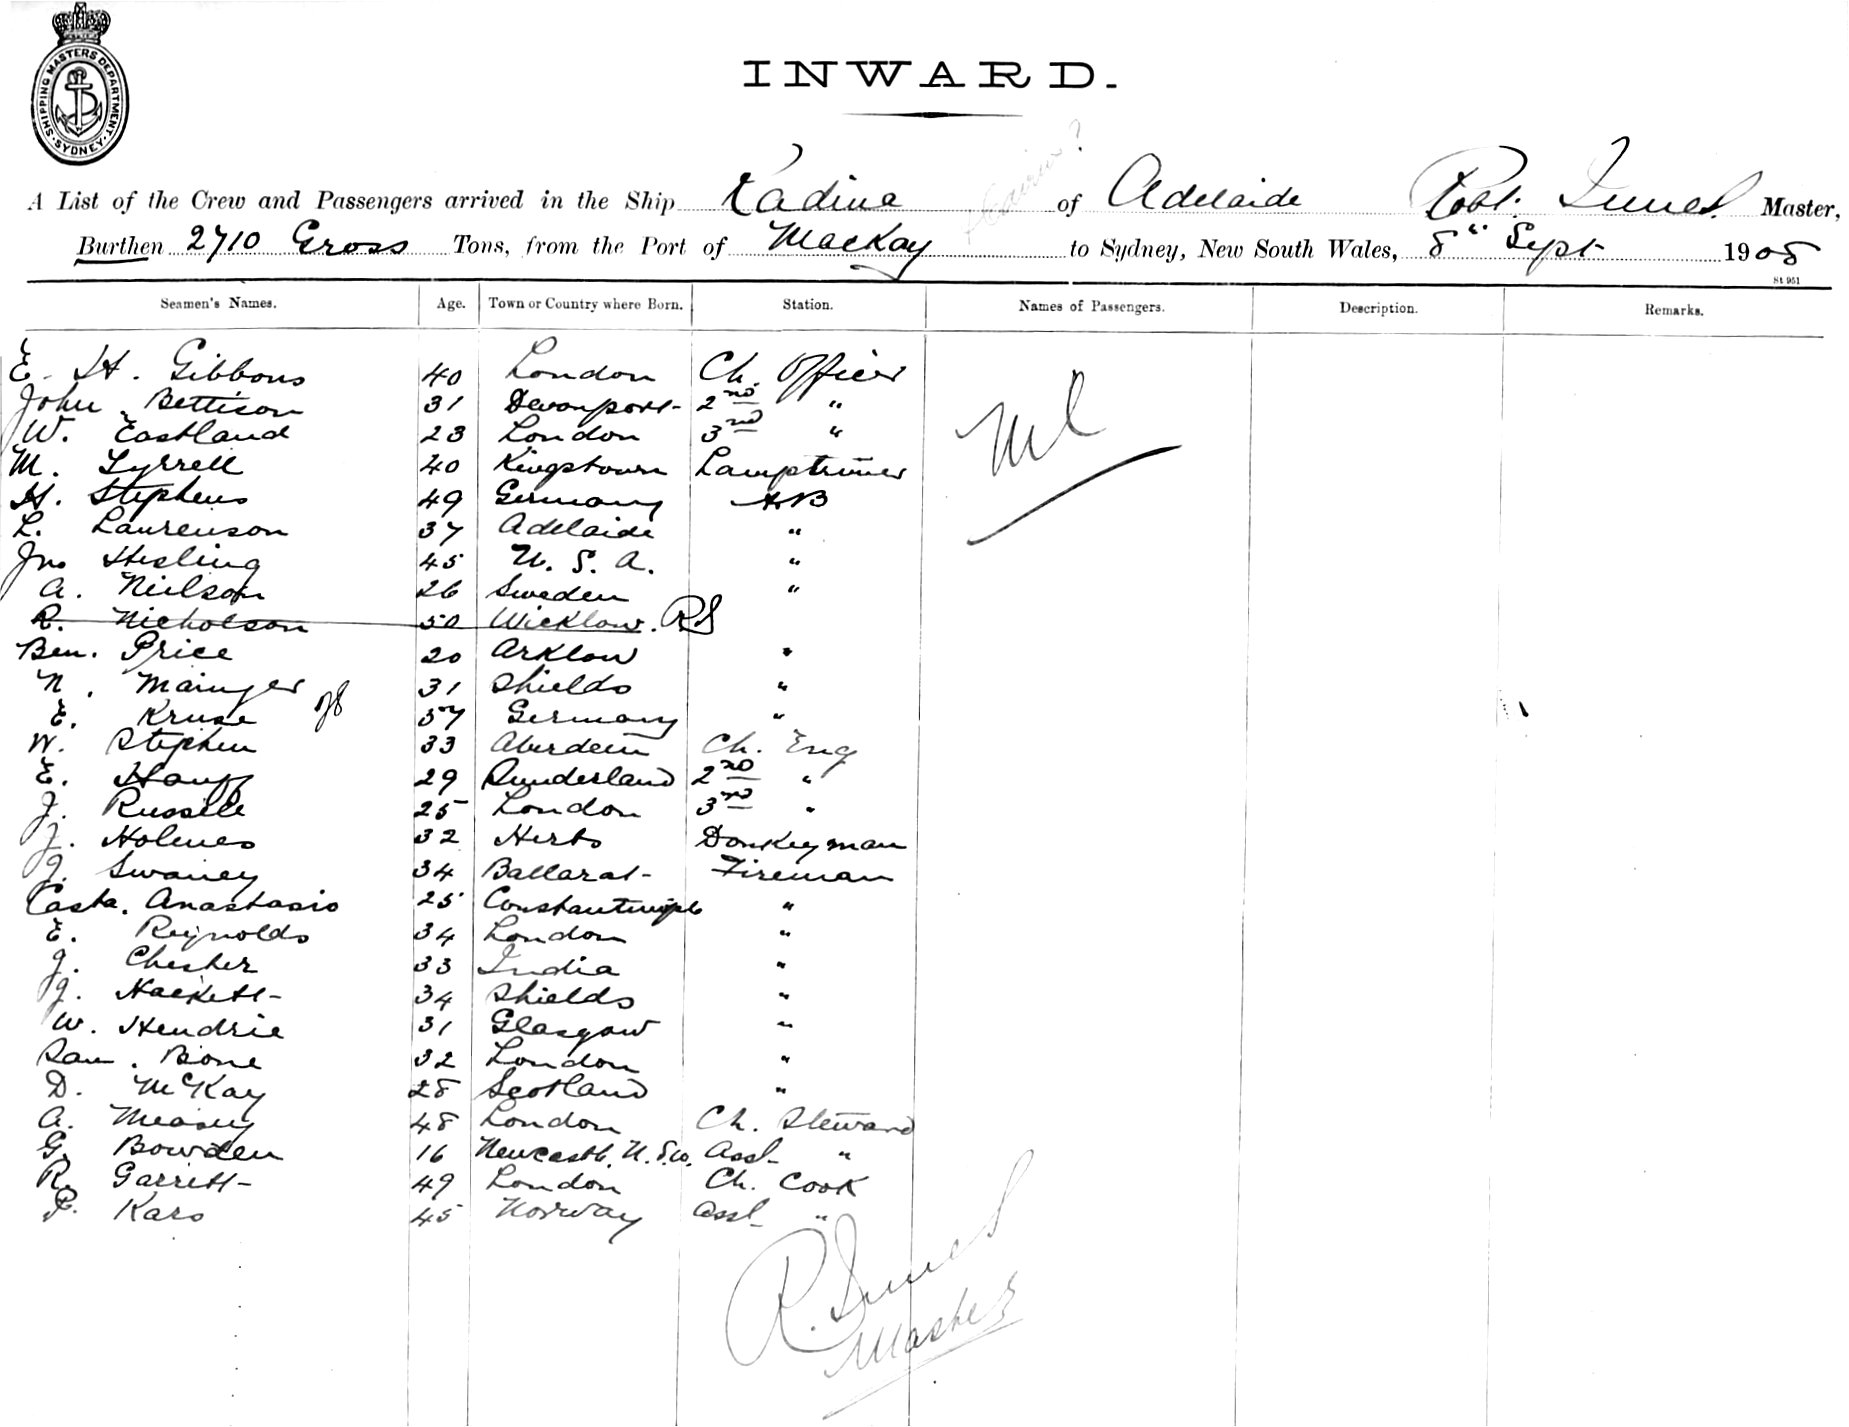 SHIPPING MASTERS DEPARTMENT · SYDNEY ·
INWARD.
A List of the Crew and Passengers arrived in the Ship Kadina of Adelaide Robt. Innes Master,
Burthen 2710 Gross Tons, from the Port of Mackay to Sydney, New South Wales, 8" Sept 1908
St 951
Seamen's Names. Age. Town or Country where Born. Station. Names of Passengers. Description. Remarks.
E. H. Gibbons 40 London Ch. Officer
Nil
John Bettison 31 Devonport 2nd "
W. Eastland 23 London 3rd "
M. Tyrrell 40 Kingstown Lamptrimer
H. Stephens 49 Germany AB
L. Laurenson 37 Adelaide "
Jno Hesling 45 U. S. A. "
A. Neilson 26 Sweden "
R. Nicholson 50 Wicklow. RS
Ben. Price 20 Arklow "
N. Mainger 31 Shields "
E. Kruse 37 Germany "
W. Stephen 33 Aberdeen Ch. Eng
E. Hauff 29 Sunderland 2nd "
J. Russell 25 London 3rd "
J. Holmes 32 Herts Donkeyman
J. Swaney 34 Ballarat Fireman
Casta. Anastasio 25 Constantinople "
E. Reynolds 34 London "
J. Chesher 33 India "
J. Hackett 34 Shields "
W. Hendrie 31 Glasgow "
Sam. Bone 32 London "
D. McKay 28 Scotland "
A. Measey 48 London Ch. Steward
G. Bowden 16 Newcastle. N.S.W. Asst "
R. Garrett 49 London Ch. Cook
P. Kars 45 Norway Asst "
R. Innes
Master